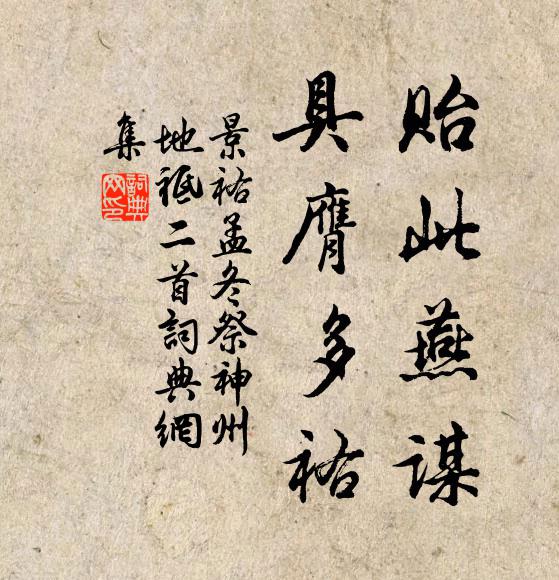 貽此燕謀
具膺多祐
景祐孟冬祭神州
地祗二首詞典網
集
詞典
网印